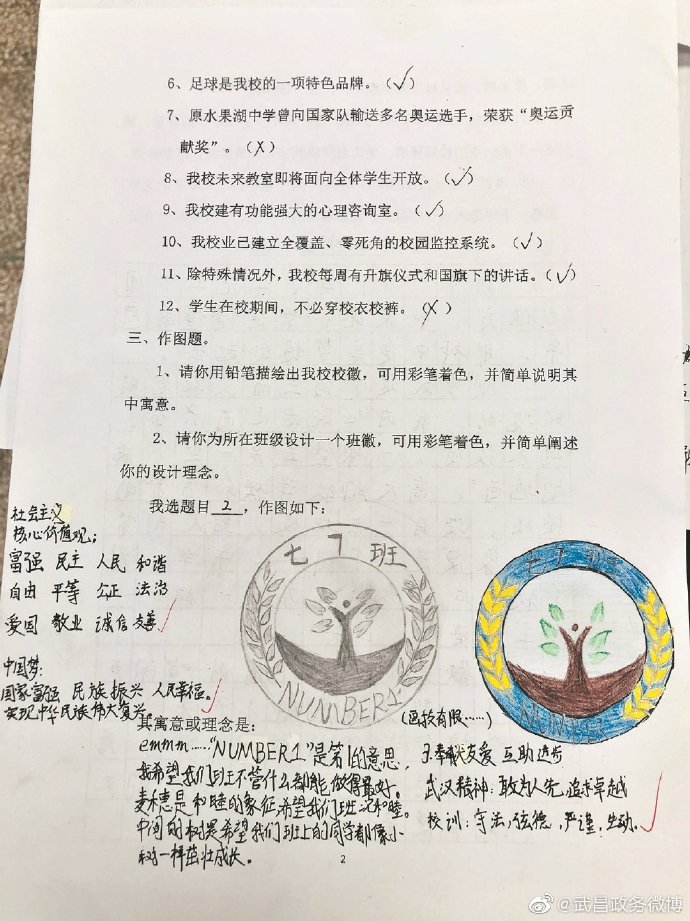 6、足球是我校的一项特色品牌。（√）
7、原水果湖中学曾向国家队输送多名奥运选手，荣获“奥运贡
献奖”。（X）
8、我校未来教室即将面向全体学生开放。（√）
9、我校建有功能强大的心理咨询室。（√）
10、我校业已建立全覆盖、零死角的校园监控系统。（√）
11、除特殊情况外，我校每周有升旗仪式和国旗下的讲话。（√）
12、学生在校期间，不必穿校衣校裤。（X）
三、作图题。
1、请你用铅笔描绘出我校校徽，可用彩笔着色，并简单说明其
中寓意。
2、请你为所在班级设计一个班徽，可用彩笔着色，并简单阐述
你的设计理念。
我选题目 2 ，作图如下：
社会主义
核心价值观：
富强 民主 人民 和谐
自由 平等 公正 法治
爱国 敬业 诚信 友善
中国梦：
国家富强 民族振兴 人民幸福。
实现中华民族伟大复兴。
七7班
NUMBER1
七7班
NUMBER1
(画技有限……)
其寓意或理念是：
emmm……“NUMBER1”是第1的意思，
我希望我们班不管什么都能做得最好。
麦穗是和睦的象征，希望我们班况和睦。
中间的树是希望我们班上的同学都像小
树一样茁壮成长。
奉献 友爱 互助 进步
武汉精神：敢为人先，追求卓越
校训：守法，弘德，严谨，生动。
2
@武昌政务微博